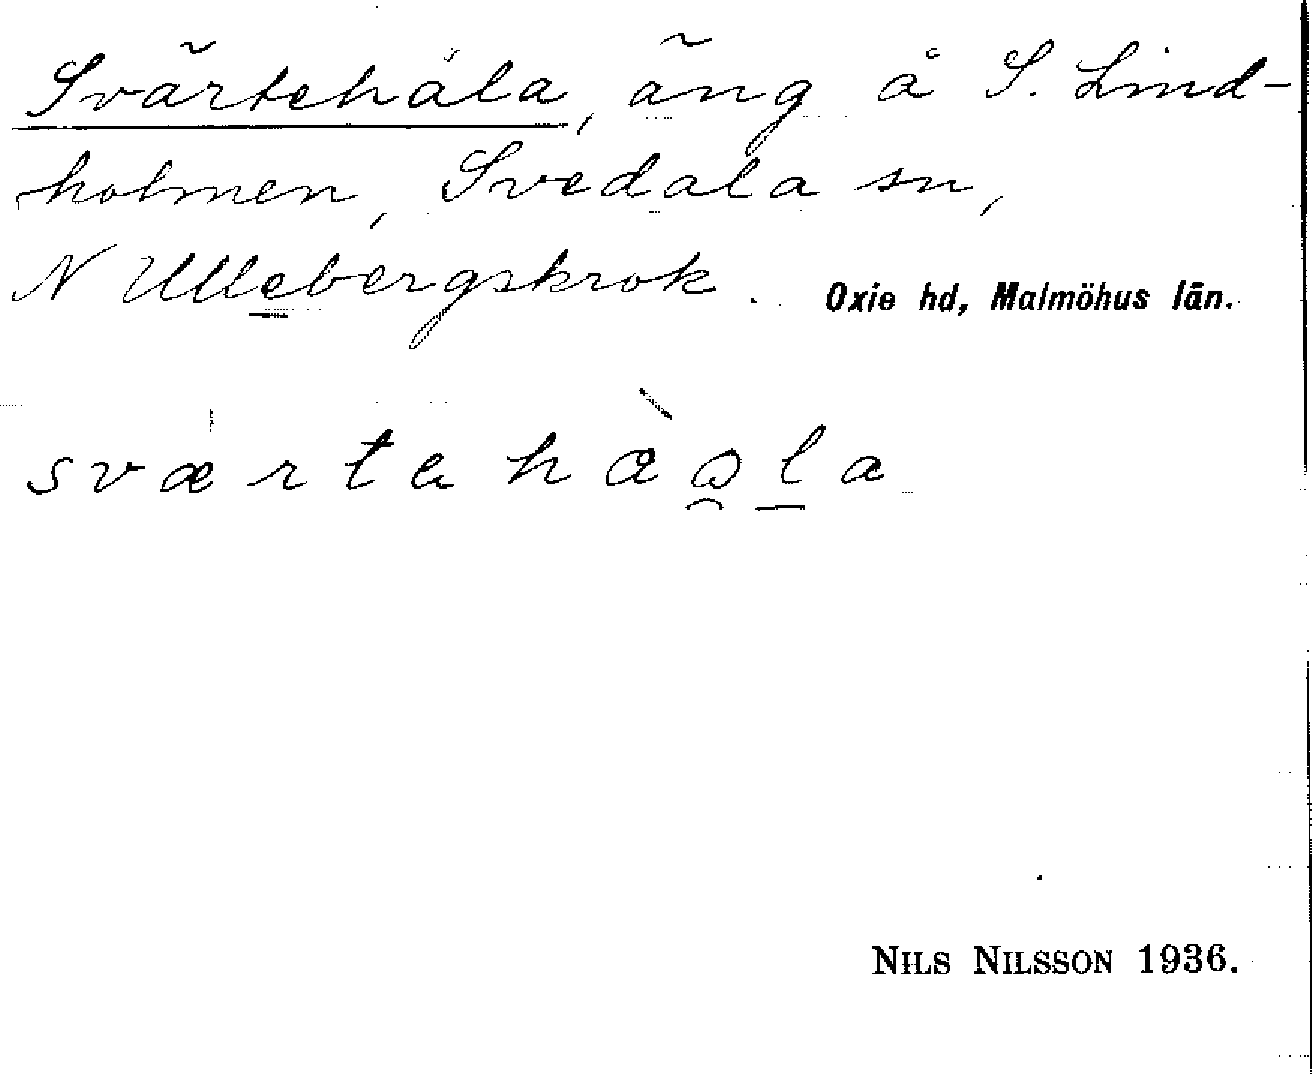 Svärtehåla, äng å S. Lind-
holmen, Svedala sn,
N Ullebergskrok. Oxie hd, Malmöhus län.
sværta hàɷla
NILS NILSSON 1936.